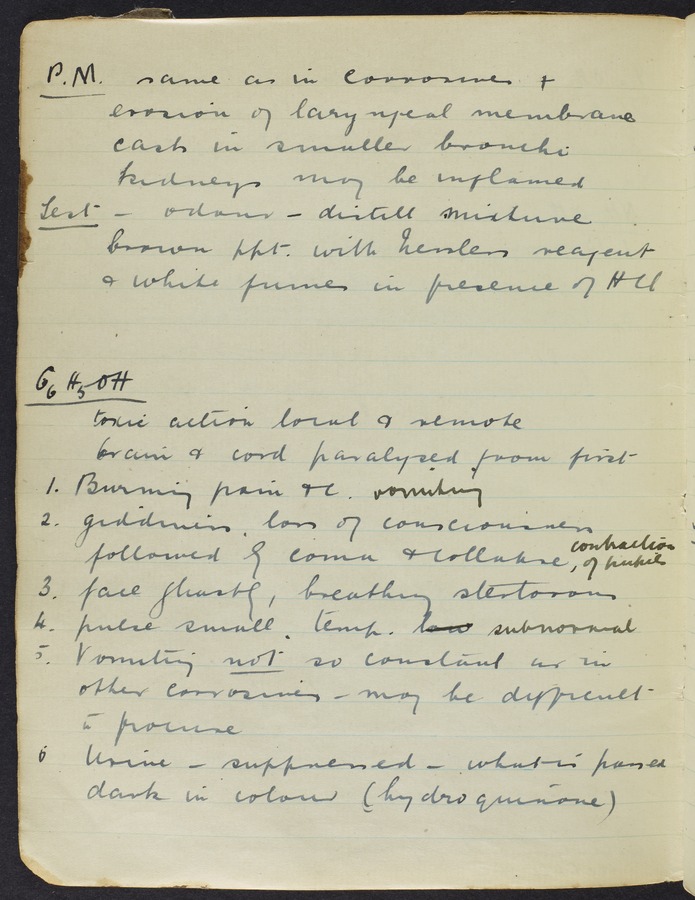 P.M. same as in corrosives +
erosion of laryngeal membrane
casts in smaller bronchi
kidneys may be inflamed
Test - odour - distill mixture
brown ppt. with Nesslers reagent
& white fumes in presence of HCl
C6H5OH
toxic action local & remote
brain & cord paralysed from first
1. Burning pain &c. vomiting
2. giddiness, loss of consciousness
followed by coma & collapse, contraction
of pupils
3. face ghastly, breathing stertorous
4. pulse small. temp. low subnormal
5. Vomiting not so constant as in
other corrosives - may be difficult
to procure
6 Urine - suppressed - what is passed
dark in colour (hydroquinone)